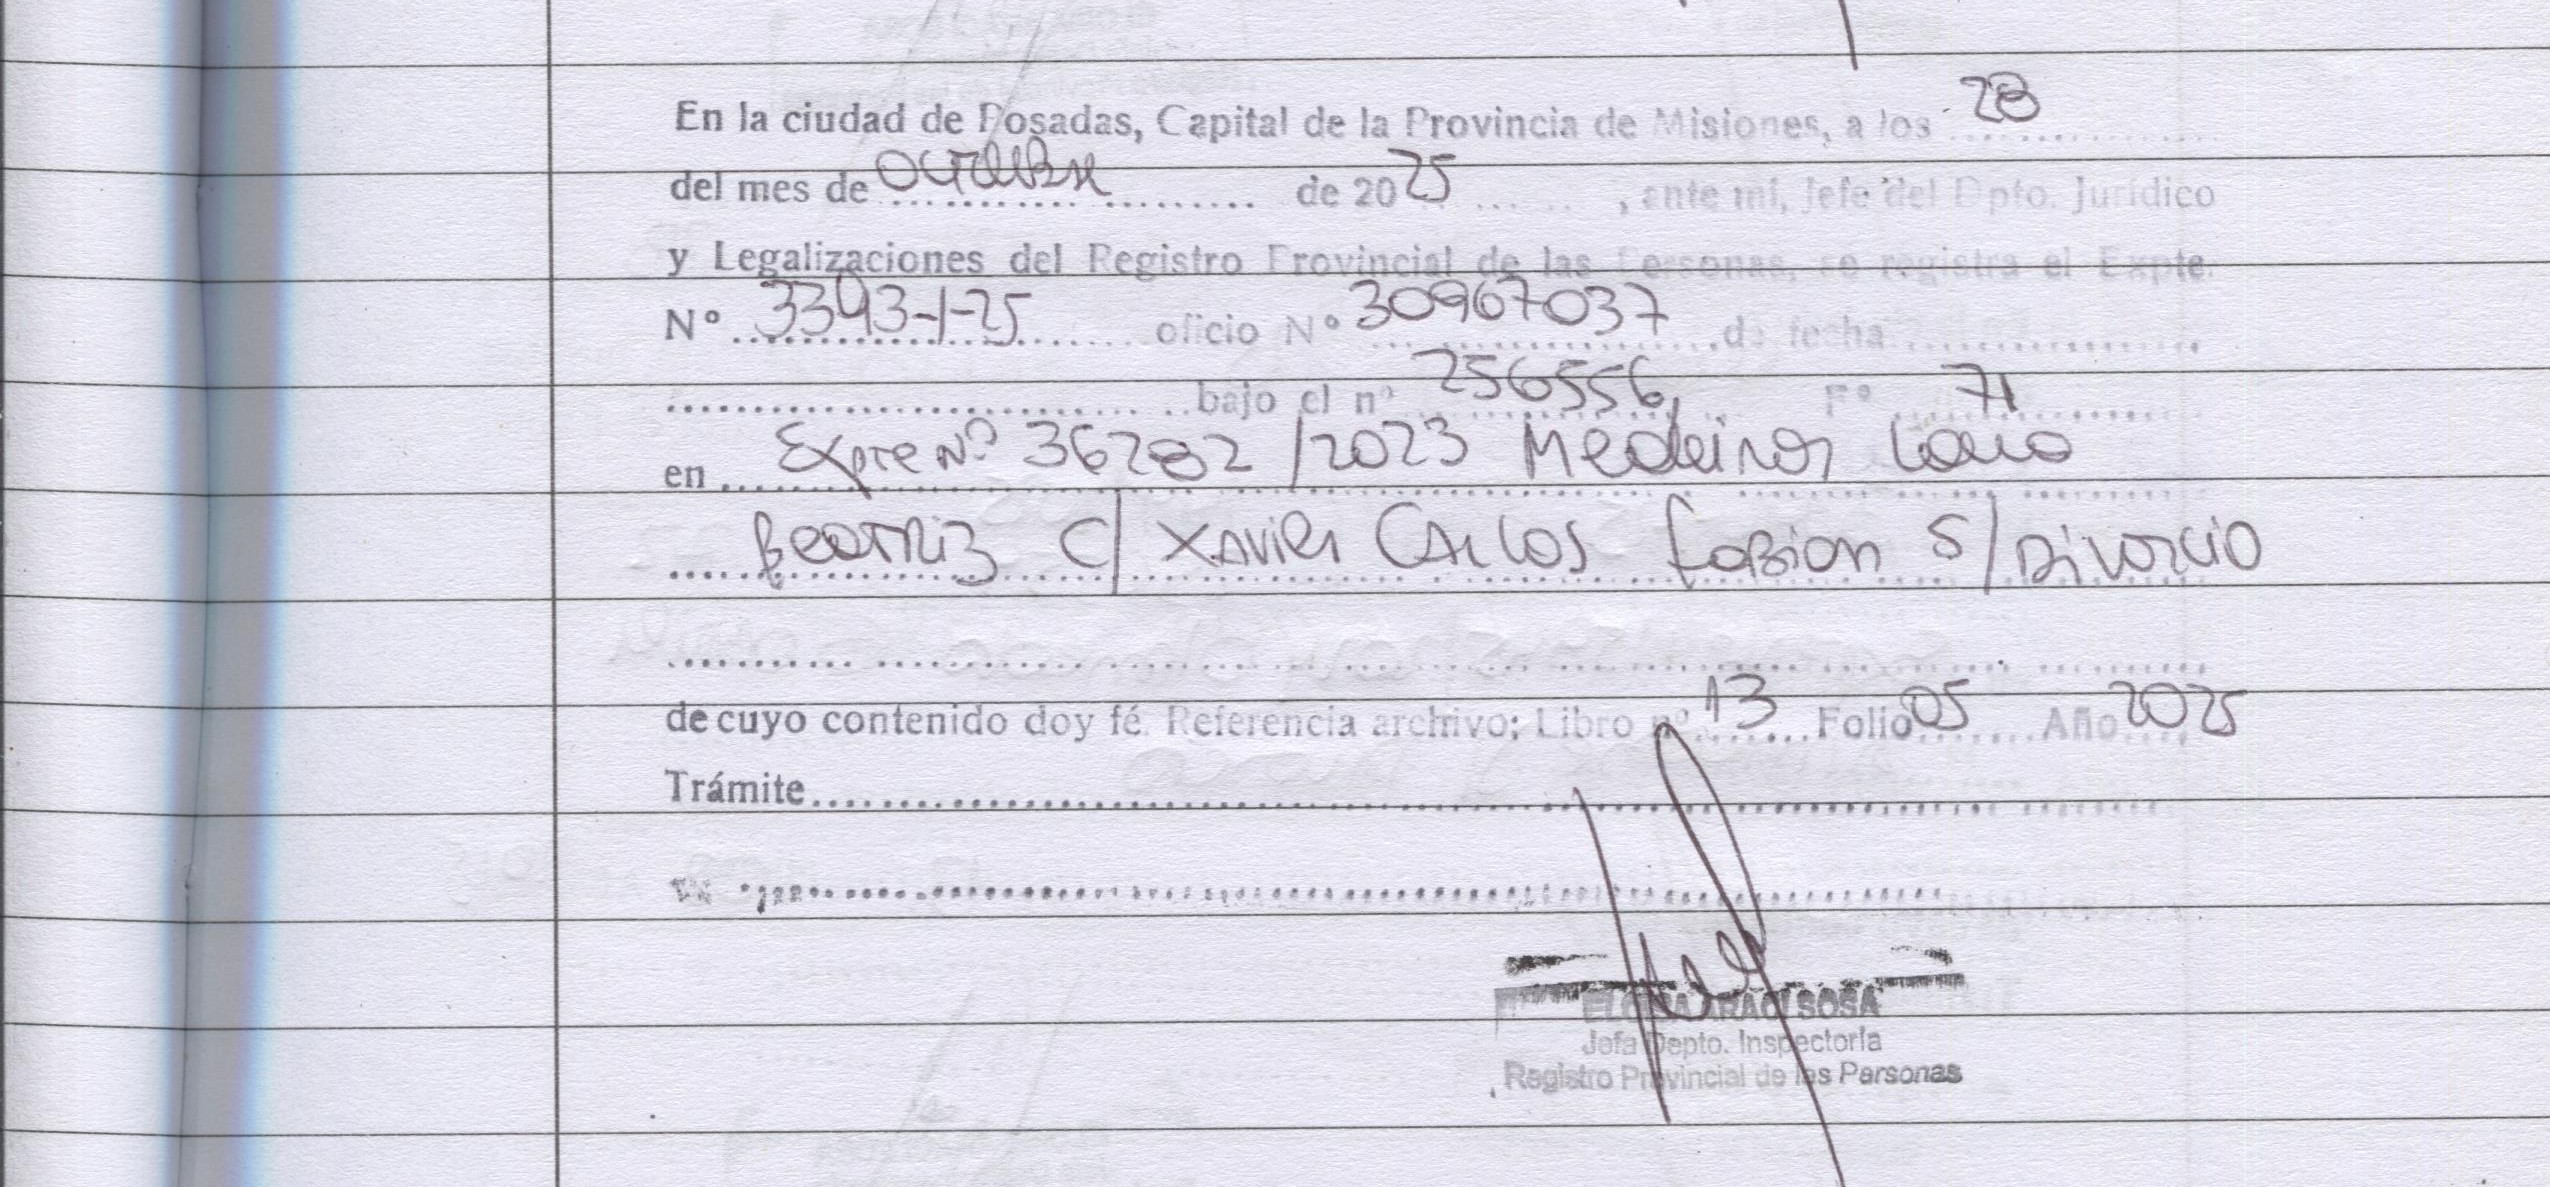 En la ciudad de Posadas, Capital de la Provincia de Misiones, a los 28
del mes de octubre de 2025, ante mí, Jefe del Dpto. Jurídico
y Legalizaciones del Registro Provincial de las Personas, se registra el Expte.
Nº 3393-1-25 oficio Nº 30967037 de fecha
bajo el nº 256556, Fº 71
en Expte Nº 36282/2023 Medeiros
Beatriz C/ Xavier Carlos Fabian S/ Divorcio
de cuyo contenido doy fé. Referencia archivo; Libro nº 13 Folio 05 Año 2025
Trámite
SOSA
Jefa Depto. Inspectoría
Registro Provincial de las Personas